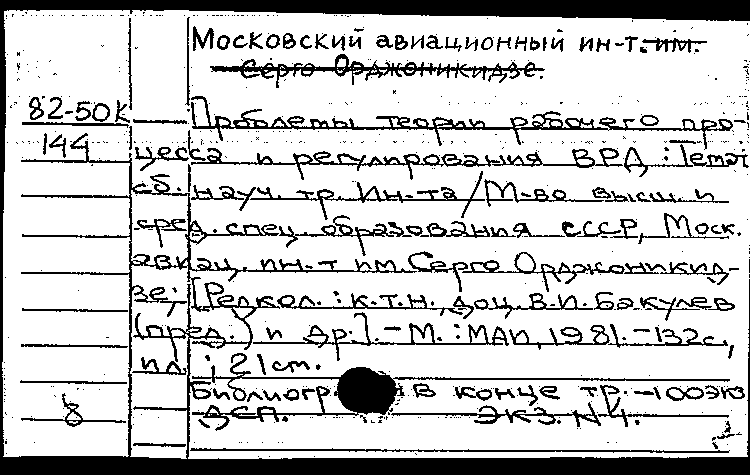 Московский авиационный ин-т. им.
Серго Орджоникидзе.
82-50К
144
Проблемы теории рабочего про-
цесса и регулирования ВРД : Темат
сб. науч. тр. Ин-та / М-во высш. и
сред. спец. образования СССР, Моск.
авиац. ин-т им. Серго Орджоникид-
зе; [Редкол. : к.т.н., доц. В.И. Бакулев
(пред.) и др.]. - М. : МАИ, 1981. - 132с.,
ил ; 21см.
Библиогр. в конце тр. - 100экз
ДСП. ЭКЗ. N 4.
8